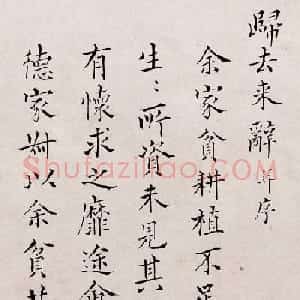 歸去来辭并序
余家貧耕植不
生〻所資未見其
有懷求之靡途會
德家叔以余貧
Shufaziliao.com